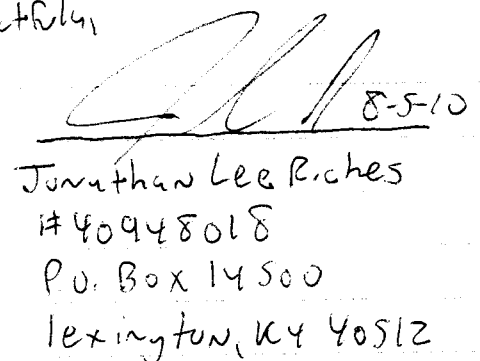 8-5-10
Jonathan Lee Riches
#40948018
P.O. Box 14500
lexington, KY 40512